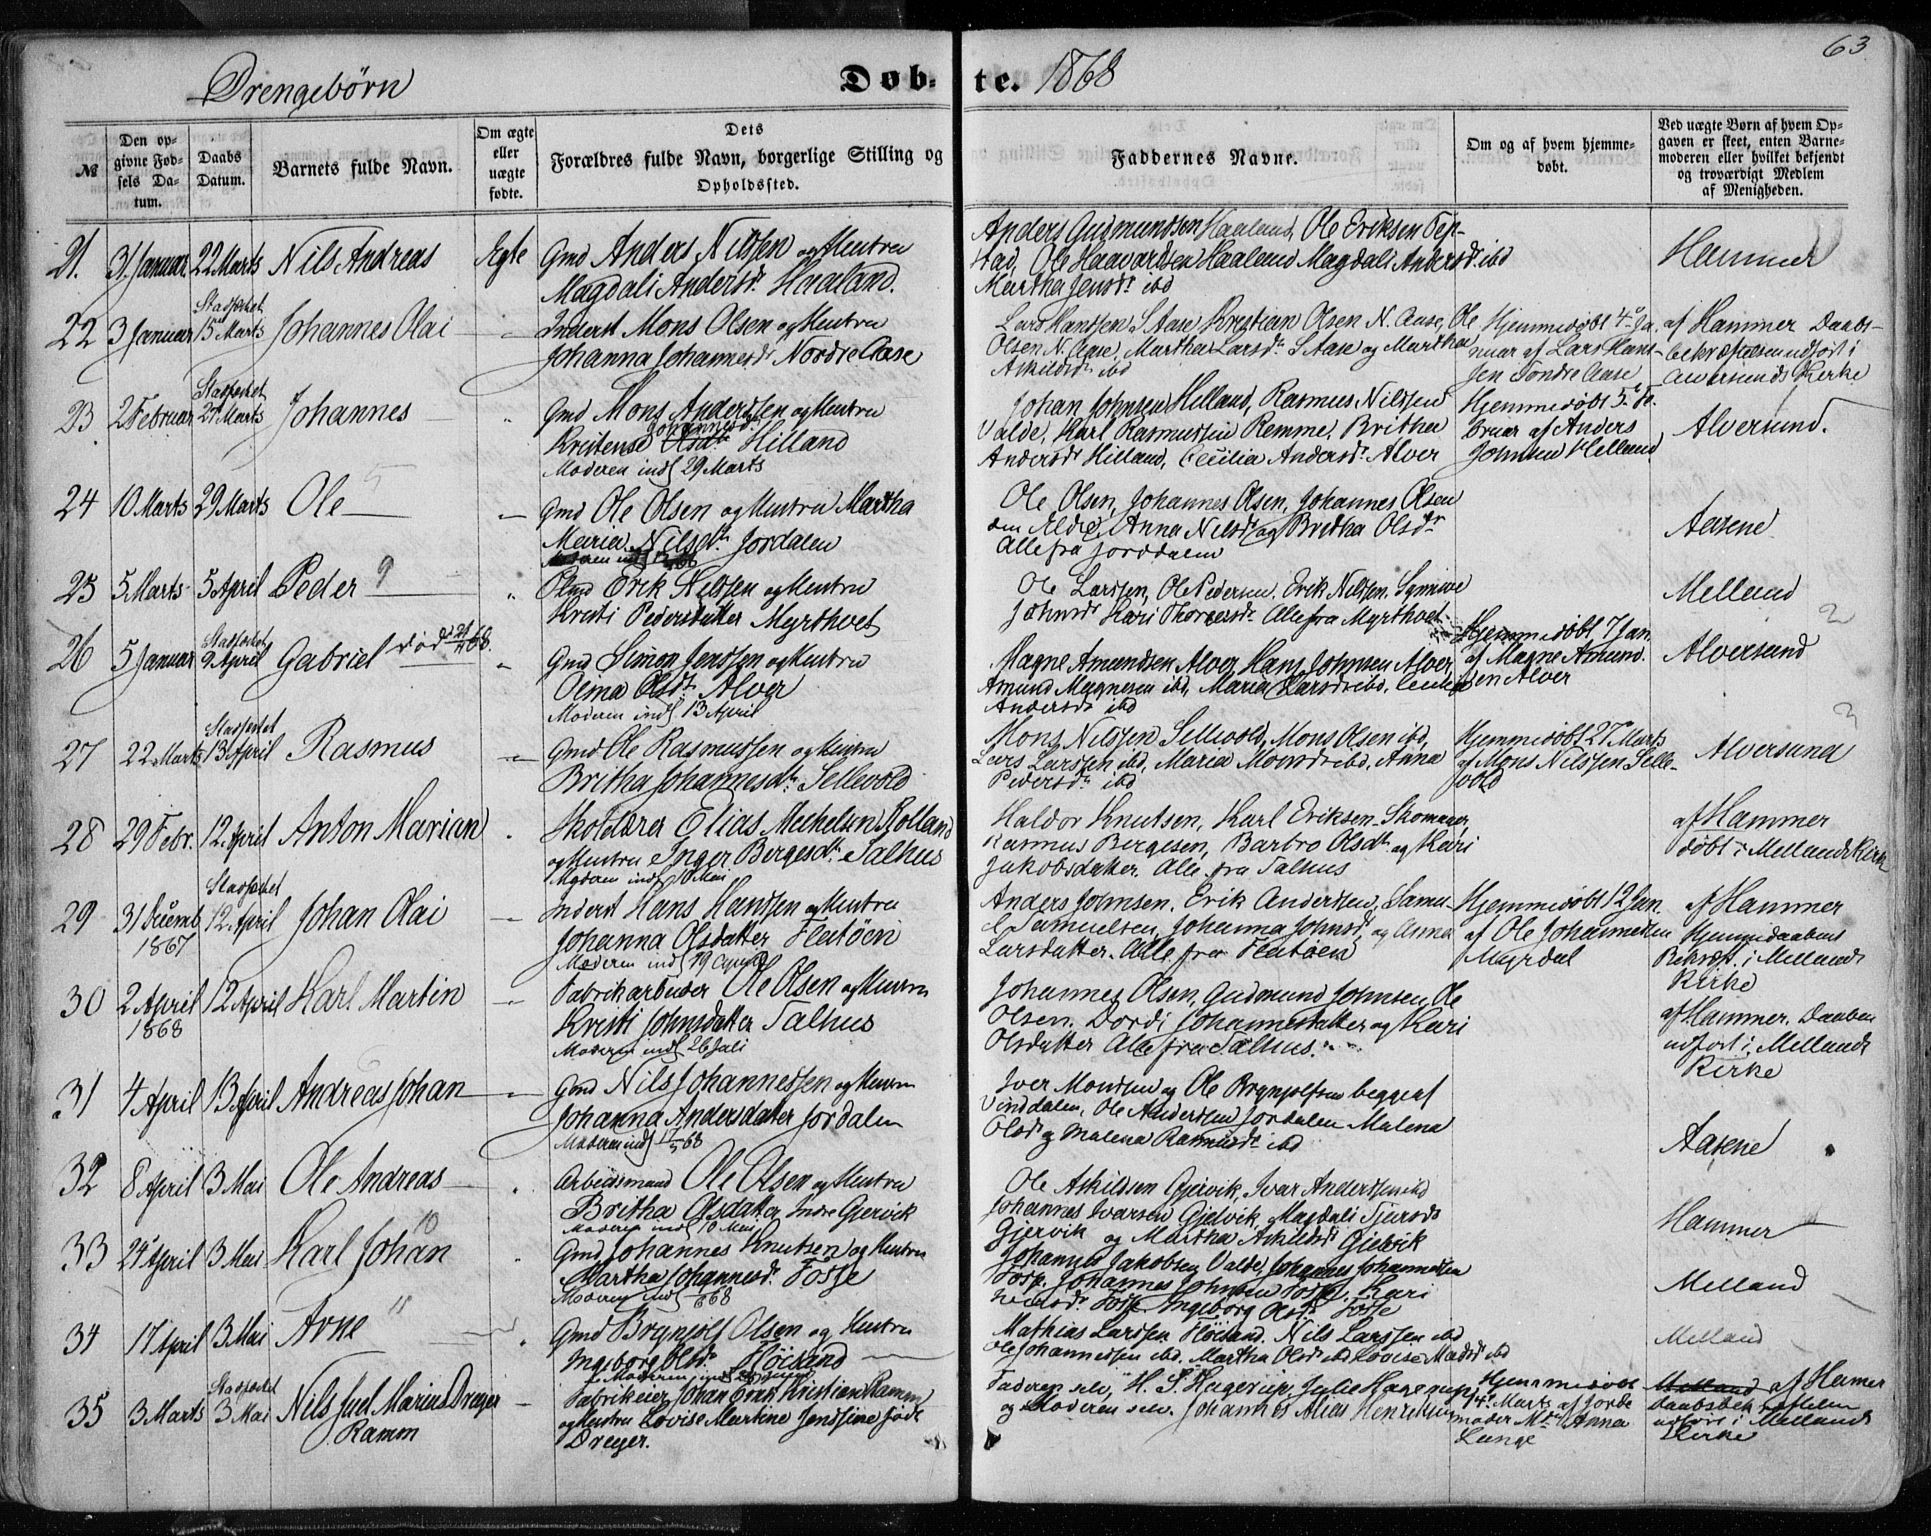 63.
Drengebørn
Døb-te. 1868
№
Den op-
givne Fød-
sels Da-
tum.
Daabs
Datum.
Barnets fulde Navn.
Om ægte
eller
uægte
fødte.
Dets
Forældres fulde Navn, borgerlige Stilling og
Opholdssted.
Faddernes Navne.
Om og af hvem hjemme-
døbt.
Ved uægte Børn af hvem Op-
gaven er skeet, enten Barne-
moderen eller hvilket bekjendt
og troværdigt Medlem
af Menigheden.
21. 31. Januar. 22 Marts Nils Andreas Egte
Gmd Anders Nilssen og Hustru
Magdali Andersdr. Haaland.
Anders Gudmundsen Haaland, Ole Eriksen Tep-
stad, Ole Haavardsen Haaland Magdali Andersdr ibd
Martha Jensdr. ibd
Hammer
22 3 Januar Stadfæstet 15 Marts Johannes Olai
Inderst Mons Olsen og Hustru
Johanna Johannesdr Nordre Aase
Lars Hanssen S Aase Kristian Olsen N. Aase, Ole
Olsen N. Aase, Martha Larsdr. S Aase og Martha
Askildsdr ibd
Hjemmedøbt 4de Ja-
nuar af Lars Hans-
sen Søndre Aase
af Hammer Daabs-
bekræftelsen udført i
Alversunds Kirke
23 2 Februar Stadfæstet 29 Marts Johannes
Gmd Mons Anderssen og Hustru
Kristense Johannesdr Hilland
Moderen indl 29 Marts
Johan Johnsen Helland, Rasmus Nilssen
Valde, Karl Rasmussen Remme, Britha
Andersdr Hilland, Cecilia Andersdr. Alver
Hjemmedøbt 5te Fe-
bruar af Anders
Johnsen Helland
Alversund.
24 10 Marts 29 Marts Ole
Gmd Ole Olsen og Hustru Martha
Maria Nilsdr. Jordalen
Ole Olsen, Johannes Olsen, Johannes Olsen
den Eldre, Anna Nilsdr og Britha Olsdr
Alle fra Jorddalen
Aasene
25 5 Marts 5 April Peder 9
Gmd Erik Nilssen og Hustru
Kristi Pedersdatter Myrthvet
Ole Larssen, Ole Pedersen, Erik Nilssen, Synneve
Johnsdr Kari Thorersdr. Alle fra Myrthvet
Melland
26 5 Januar Stadfæstet 9 April Gabriel død d 21/11 68.
Gmd Simon Jenssen og Hustru
Oline Olsdr. Alver
Moderen indl 13 April
Magne Amundsen Alver Hans Johnsen Alver
Amund Magnesen ibd, Maria Larsdr ibd, Cecilia
Andersdr ibd
Hjemmedøbt 7 Jan.
af Magne Amund-
sen Alver
Alversund
2
27 22 Marts Stadfæstet 13 April Rasmus
Gmd Ole Rasmussen og Hustru
Britha Johannesdr. Sellevold
Mons Nilssen Sellevold, Mons Olsen ibd,
Lars Larssen ibd, Maria Monsdr ibd, Anna
Pedersdr ibd
Hjemmedøbt 27 Marts
af Mons Nilssen Selle-
vold
Alversund
3
28 29 Febr. 12. April Anton Marian
Skolelærer Elias Mechelsen Rolland
og Hustru Inger Bergesdr. Salhus
Moderen indl 10 Mai
Haldor Knutsen, Karl Eriksen Skomager,
Rasmus Bergesen, Barbro Olsdr. og Kari
Jakobsdatter. Alle fra Salhus
af Hammer
døbt i Mellands Kirke
29 31 Decemb 1867 Stadfæstet 12 April Johan Olai
Inderst Hans Hanssen og Hustru
Johanna Olsdatter Flatøen
Moderen indl 19 April
Anders Johnsen, Erik Anderssen, Samu-
el Samuelsen, Johanna Johnsdr, og Anna
Larsdatter. Alle fra Flatøen
Hjemmedøbt 12 Jan.
af Ole Johannessen
Myrdal
af Hammer
Hjemmedaabens
Bekræft. i Mellands
Kirke
30 2 April 1868 12 April Karl Martin
Fabrikarbeider Ole Olsen og Hustru
Kristi Johnsdatter Salhus
Moderen indl 26 Juli
Johannes Olsen, Gudmund Johnsen, Ole
Olsen. Dordi Johannesdatter og Kari
Olsdatter Alle fra Salhus.
af Hammer. Daaben
udført i Mellands
Kirke
31 4 April 13 April Andreas Johan
Gmd Nils Johannessen og Hustru
Johanna Andersdatter Jordalen
Moderen indl 17/5 68
Iver Monssen og Ole Brynjolfsen begge af
Vinddalen, Ole Anderssen Jordalen Malena
Olsdr og Malena Rasmusdr. ibd
Aasene
32 8 April 3 Mai Ole Andreas
Arbeidsmand Ole Olsen og Hustru
Britha Olsdatter, Indre Gjervik
Moderen indl 10 Mai
Ole Askildsen Gjervik, Ivar Anderssen ibd
Johannes Ivarsen Gjelvik, Magdali Sjursdr
Gjervik og Martha Askildsdr Gjelvik
Hammer
33 24 April 3 Mai Karl Johan 10
Gmd Johannes Knutsen og Hustru
Martha Johannesdr. Fosse
Johannes Jakobsen Valde, Johannes Johannessen
Fosse, Johannes Johnsen Fosse, Kari
Fosse Ingeborg Olsdr Fosse
Melland
34 17 April 3 Mai Arne 11
Gmd Brynjolf Olsen og Hustru
Ingeborg Olsdr. Høisand
Mathias Larssen Høisand. Nils Larssen ibd
Ole Johannessen ibd. Martha Olsdr ibd Lovise Madsdr ibd
Melland
35 3 Marts Stadfæstet 3 Mai Nils Juel Marius Dreyer
Ramm
Fabrikeier Johan Ernst Kristian Ramm
og Hustru Lovise Martine Jendsine Juel
Dreyer.
Faderen selv, H. S. Hagerup, Julie Hagerup
og Moderen selv. Johannes Alias Henriksen
Hjemmedøbt
14de Marts af Jorde-
moder Md. Anna
Lange
Melland af Hamer
Daabsbekræftelsen
udført i Mellands
Kirke